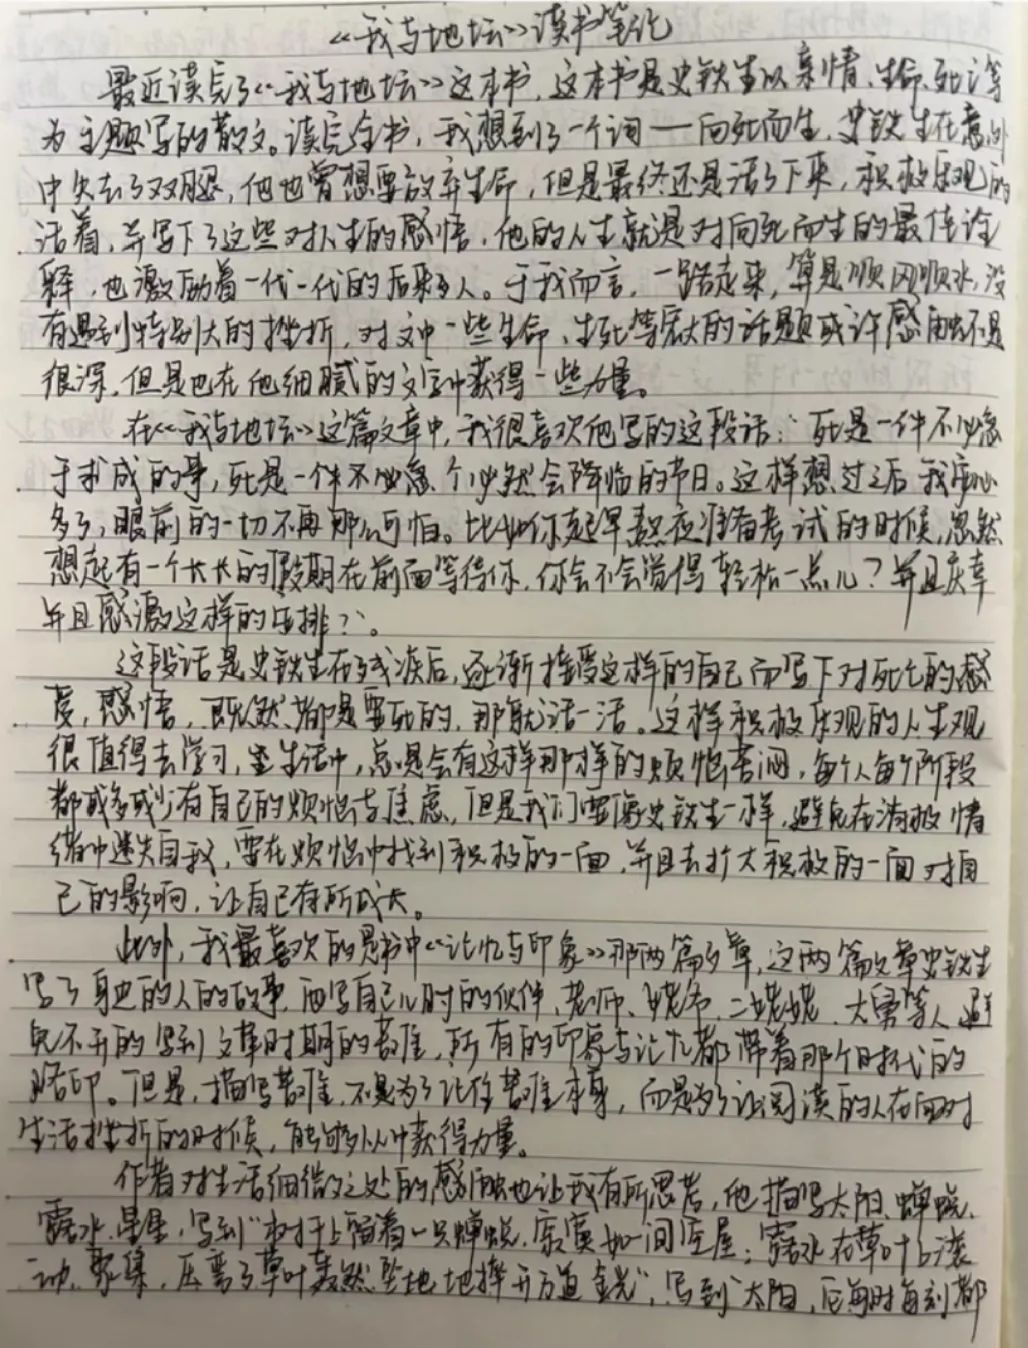 《我与地坛》读书笔记
最近读完了《我与地坛》这本书，这本书是史铁生以亲情、生命、死亡等
为主题写的散文。读完全书，我想到了一个词——向死而生，史铁生在意外
中失去了双腿，他也曾想要放弃生命，但是最终还是活了下来，积极乐观的
活着，并写下了这些对人生的感悟，他的人生就是对向死而生的最佳诠
释，也激励着一代一代的后来人。于我而言，一路走来，算是顺风顺水，没
有遇到特别大的挫折，对文中一些生命、生死等宏大的话题或许感触不是
很深，但是也在他细腻的文字中获得一些力量。
在《我与地坛》这篇文章中，我很喜欢他写的这段话：“死是一件不必急
于求成的事，死是一个必然会降临的节日。这样想过之后我安心
多了，眼前的一切不再那么可怕。比如你起早熬夜准备考试的时候，忽然
想起有一个长长的假期在前面等待你，你会不会觉得轻松一点儿？并且庆幸
并且感激这样的安排？”。
这段话是史铁生在残疾后，逐渐接受这样的自己而写下对死亡的感
受，感悟，既然都是要死的，那就活一活。这样积极乐观的人生观
很值得去学习，生活中，总是会有这样那样的烦恼苦闷，每个人每个阶段
都或多或少有自己的烦恼与焦虑，但是我们要像史铁生一样，避免在消极情
绪中迷失自我，要在烦恼中找到积极的一面，并且去扩大积极的一面对自
己的影响，让自己有所成长。
此外，我最喜欢的是书中《记忆与印象》那两篇文章，这两篇文章史铁生
写了身边的人的故事，西写自己儿时的伙伴、老师、姥爷、二姥姥、大舅等人，避
免不开的写到文革时期的苦难，所有的印象与记忆都带着那个时代的
烙印。但是，描写苦难，不是为了记住苦难本身，而是为了让阅读的人在面对
生活挫折的时候，能够从中获得力量。
作者对生活细微之处的感触也让我有所思考，他描写太阳、蝉蜕、
露水、星星，写到“树干上留着一只蝉蜕，寂寞如一间空屋；露水在草叶上滚
动，聚集，压弯了草叶轰然坠地地摔开万道金光”，写到“太阳，它每时每刻都